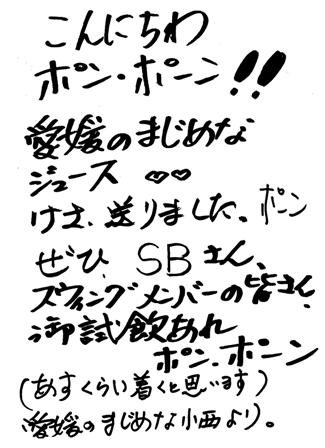 こんにちわ
ポン・ポーン!!
愛媛のまじめな
ジュース
けさ、送りました。ポン
ぜひ、SBさん、
ズウィングメンバーの皆さん
御試飲あれ
ポン・ポーン
(あすくらい着くと思います)
愛媛のまじめな小西より。